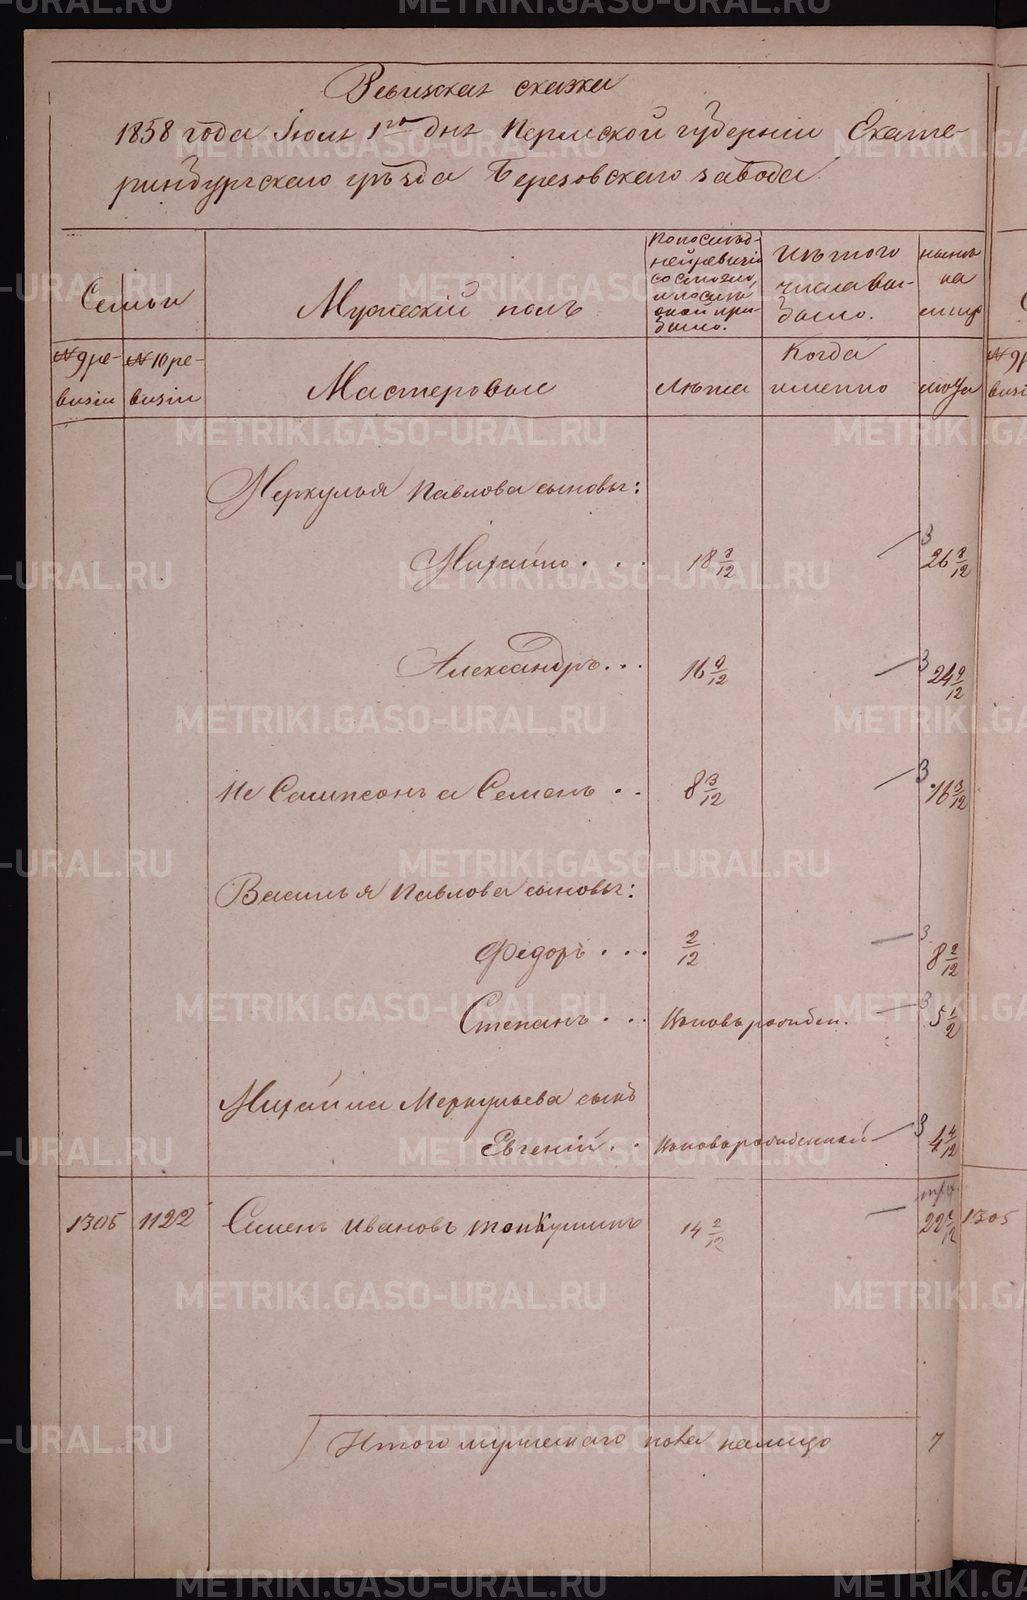 METRIKI.GASO-URAL.RU
Ревизская сказка
1858 года Іюля 1го дня Пермской губерніи Екате-
ринбургскаго уѣзда Березовскаго завода.
Семьи
Мужескій полъ
По послѣд-
ней ревизіи
состояло
и послѣ
оной при-
было.
Изъ того
числа вы-
было.
нынѣ
на
лицо
№ 9 ре-
визіи
№ 10 ре-
визіи
Мастеровые
Лѣта
Когда
именно
лѣта
№ 9 р
визі
Меркулья Павлова сыновья:
Михайло . . . 18 8/12 — 3 26 8/12
Александръ . . . 16 9/12 — 3 24 9/12
Не Сампсонъ а Семенъ . . 8 3/12 — 3 16 3/12
Василья Павлова сыновья:
Федоръ . . . 2/12 — 3 8 2/12
Степанъ . . . Вновьрожден. — 3 5 1/2
Михаила Меркульева сынъ
Евгеній . . Вновьрожденный — 3 4 4/12
1305 1122 Семенъ Ивановъ 14 2/12 — 22 2/12 1305
Итого мужескаго пола налицо 7